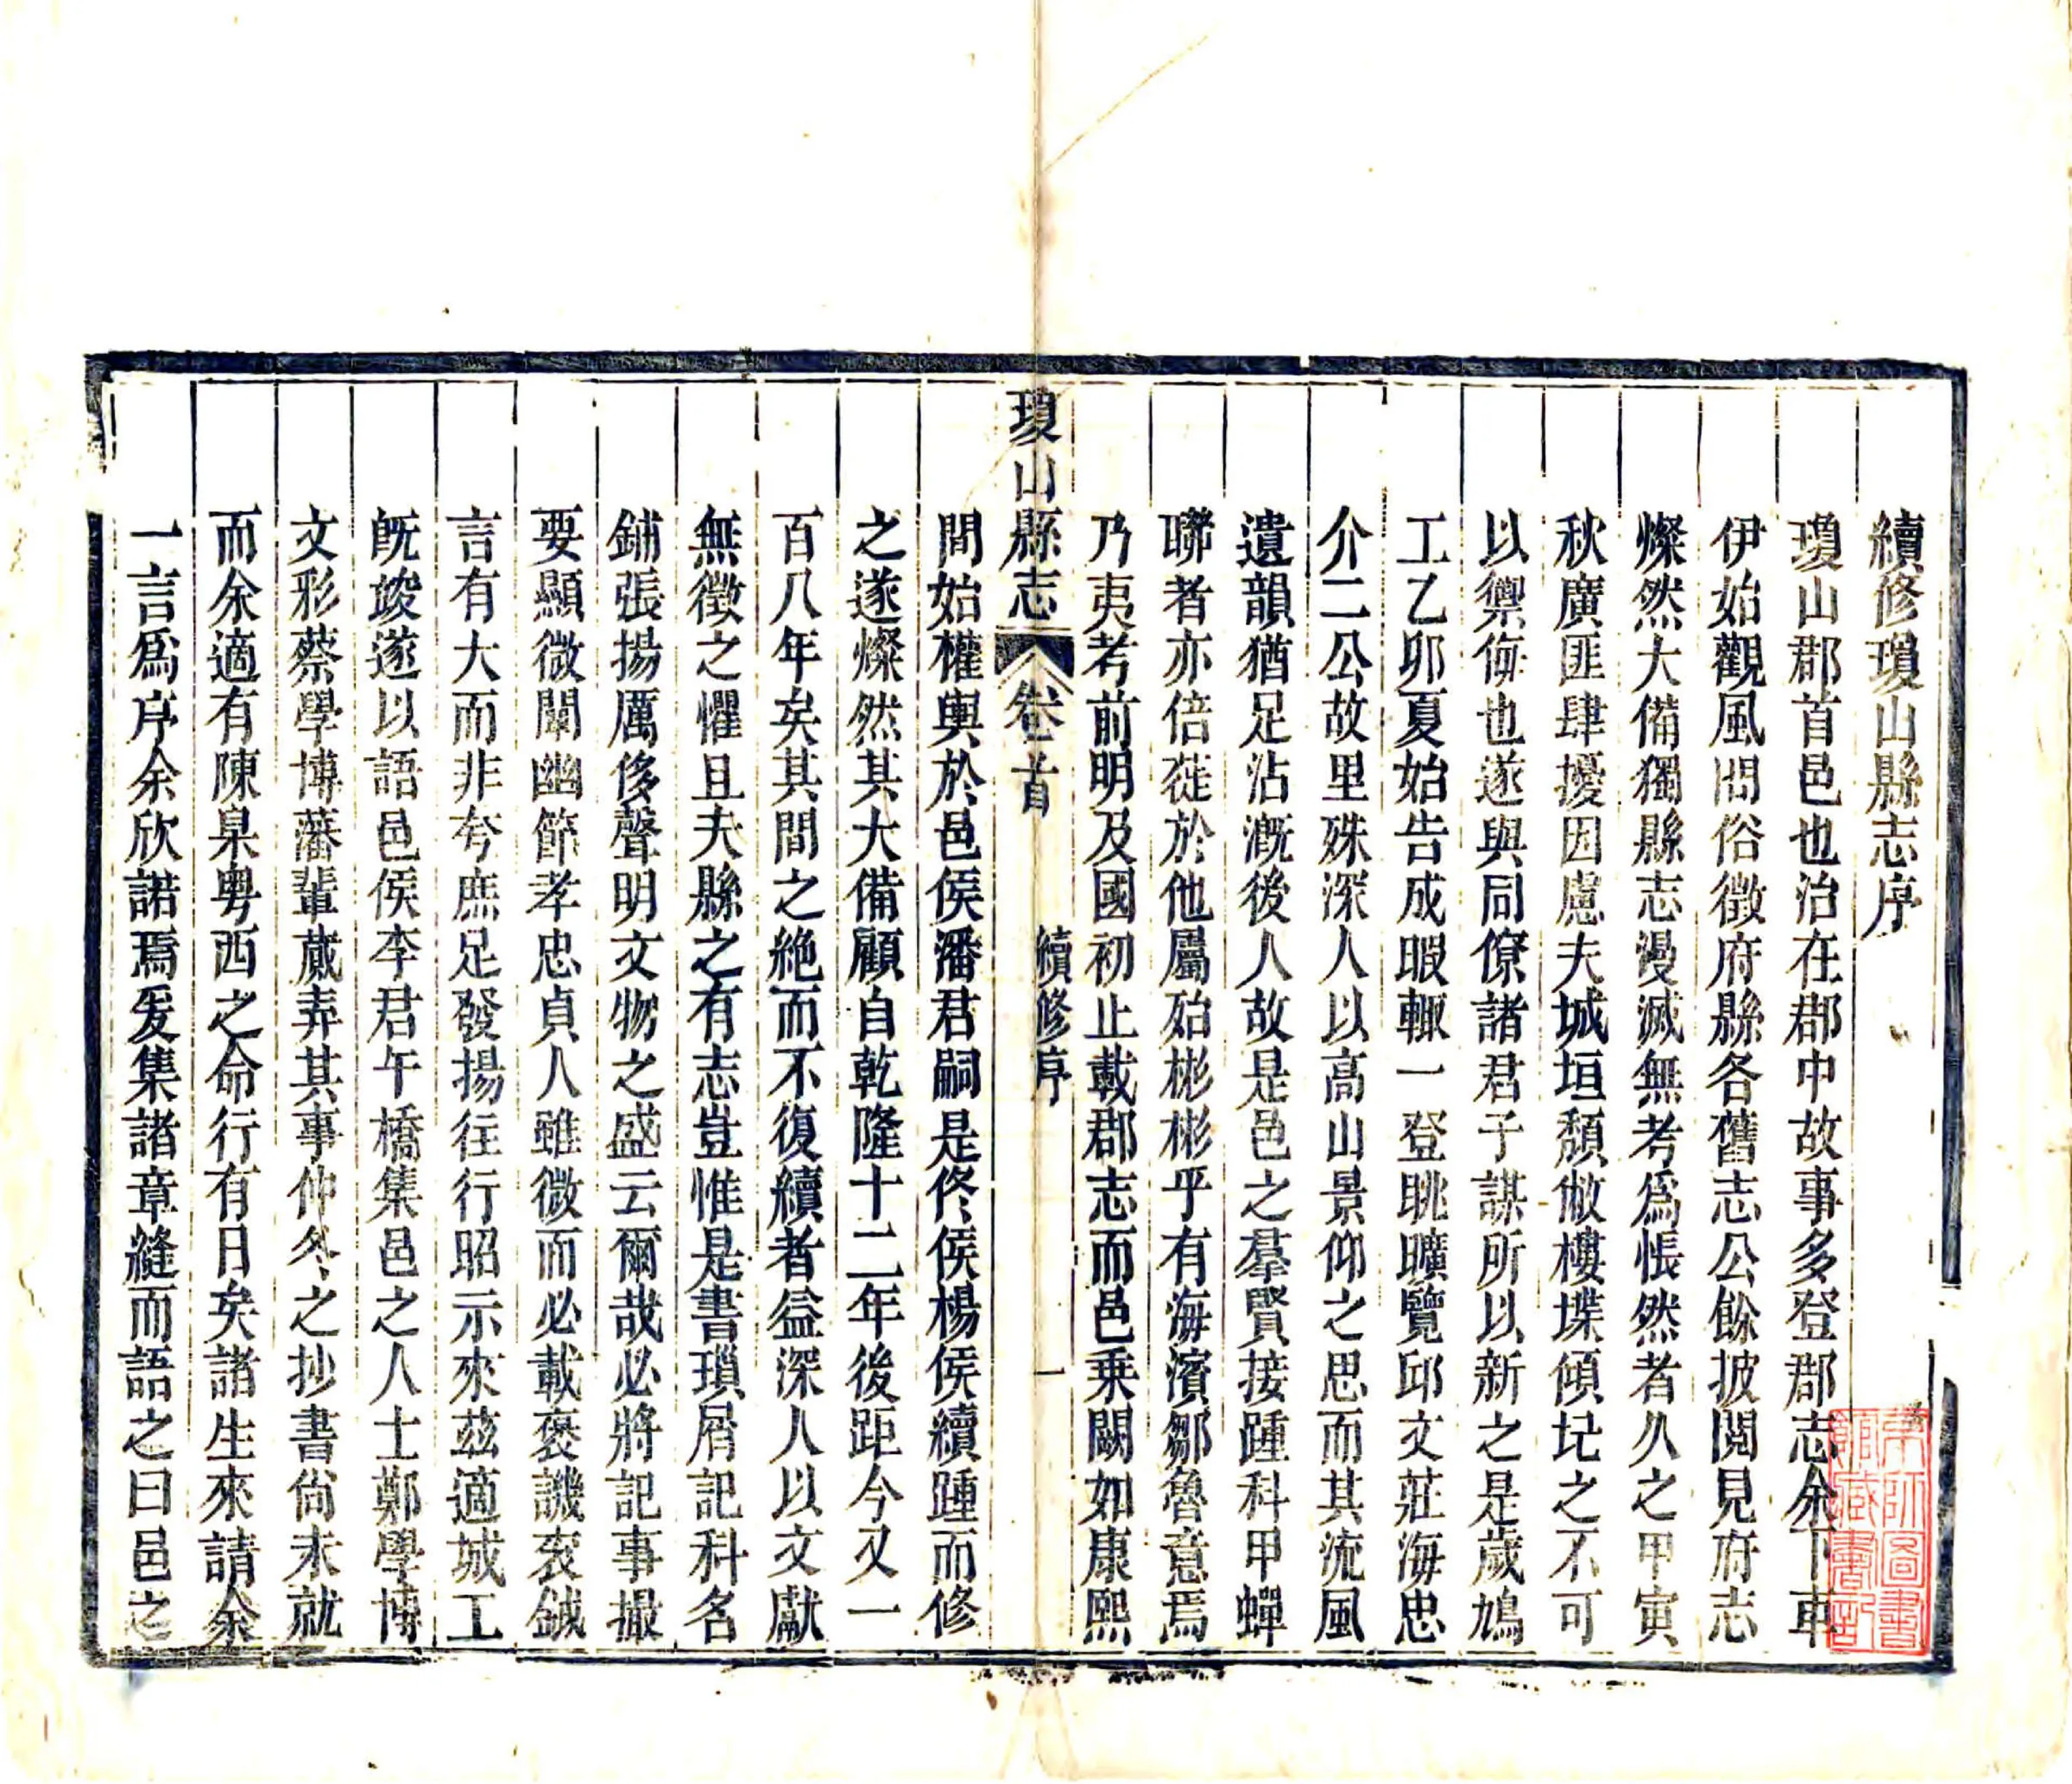 續修瓊山縣志序
瓊山郡首邑也治在郡中故事多登郡志余下車
伊始觀風問俗徵府縣各舊志公餘披閱見府志
燦然大備獨縣志漫滅無考為悵然者久之甲寅
秋廣匪肆擾因慮夫城垣頹敝樓堞傾圮之不可
以禦侮也遂與同僚諸君子謀所以新之是歲鳩
工乙卯夏始告成暇輒一登眺曠覽邱文莊海忠
介二公故里殊深人以高山景仰之思而其流風
遺韻猶足沾漑後人故是邑之羣賢接踵科甲蟬
聯者亦倍蓰於他屬殆彬彬乎有海濱鄒魯意焉
乃夷考前明及國初止載郡志而邑乗闕如康熙
瓊山縣志 卷首 續修序 一
間始權輿於邑侯潘君嗣是佟侯楊侯續踵而修
之遂燦然其大備顧自乾隆十二年後距今又一
百八年矣其間之絶而不復續者益深人以文獻
無徵之懼且夫縣之有志豈惟是書瑣屑記科名
鋪張揚厲侈聲明文物之盛云爾哉必將記事撮
要顯微闡幽節孝忠貞人雖微而必載褒譏衮鉞
言有大而非夸庶足發揚往行昭示來茲適城工
旣竣遂以語邑侯李君午橋集邑之人士鄭學博
文彩蔡學博藩輩蕆弆其事仲冬之抄書尙未就
而余適有陳臬粤西之命行有日矣諸生來請余
一言爲序余欣諾焉爰集諸章縫而語之曰邑之
京師圖書
館藏書記